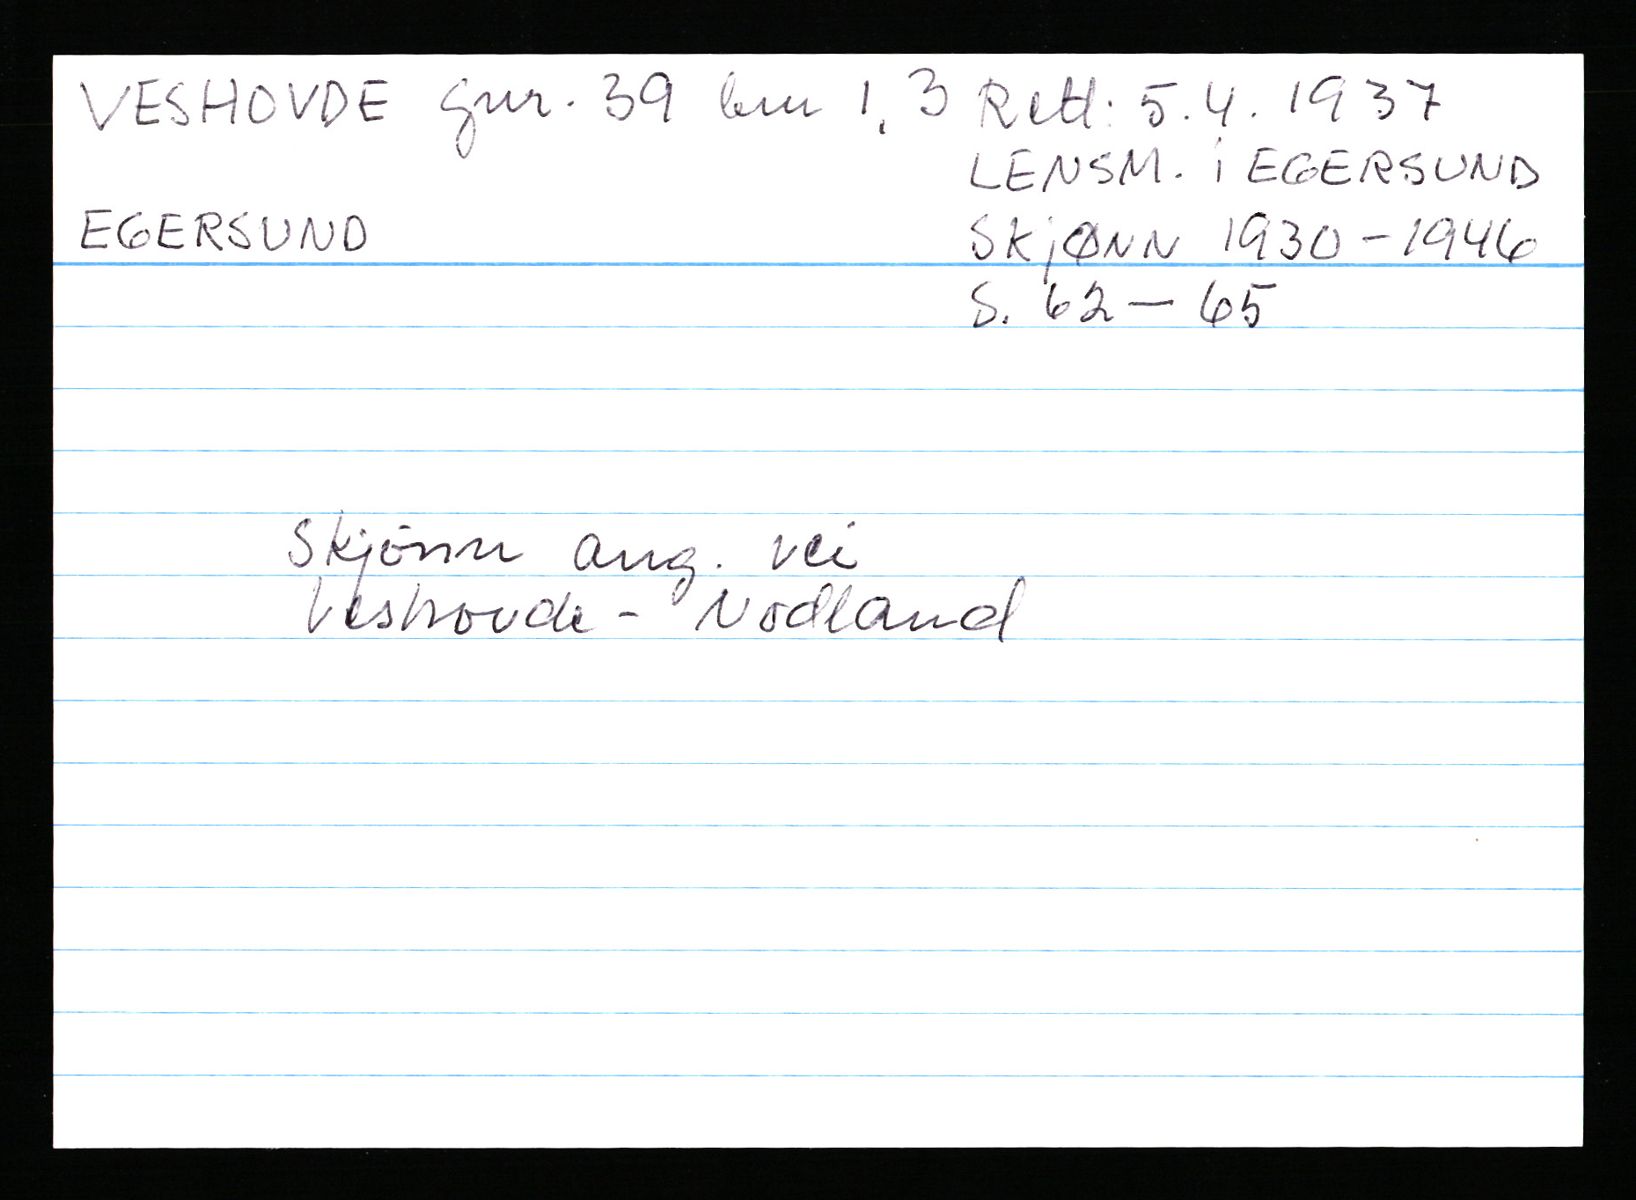 VESHOVDE gnr. 39 bnr 1, 3 Rett: 5.4. 1937
LENSM. i EGERSUND
EGERSUND
SKJØNN 1930-1946
S. 62-65
Skjønn ang. vei
Veshovde - Nodland